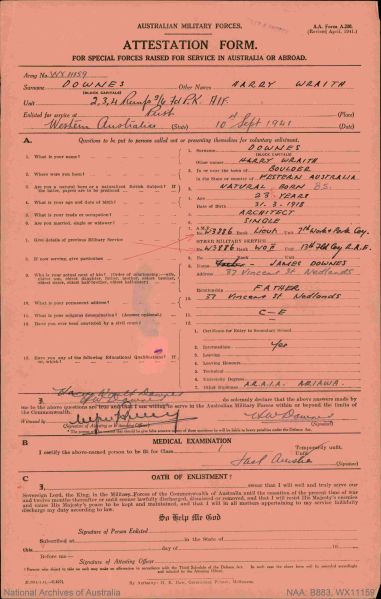 AUSTRALIAN MILITARY FORCES.
A.A. Form A.200.
(Revised April, 1941.)
ATTESTATION FORM.
FOR SPECIAL FORCES RAISED FOR SERVICE IN AUSTRALIA OR ABROAD.
Army No. WX11159
Surname DOWNES Other Names HARRY WRAITH
(BLOCK CAPITALS)
Unit
Enlisted for service at Perth
Western Australia (State) 10th Sept 1941 (Date)
A. Questions to be put to persons called out or presenting themselves for voluntary enlistment.
1. What is your name?
1. Surname DOWNES
(BLOCK CAPITALS)
Other names HARRY WRAITH
2. Where were you born?
2. In or near the town of BOULDER
in the state or country of WESTERN AUSTRALIA
3. Are you a natural born or a naturalized British Subject? If the latter, papers are to be produced
3. NATURAL BORN BS.
4. What is your age and date of birth?
4. Age 23 YEARS
Date of Birth 31.3.1918
5. What is your trade or occupation?
5. ARCHITECT
6. Are you married, single or widower?
6. SINGLE
7. Give details of previous Military Service
No. W3886 Lieut.
OTHER MILITARY SERVICE
No. W3886 WO II 13th Fld Coy R.A.E.
8. If now serving, give particulars
9. Who is your actual next of kin? (Order of relationship:—wife, eldest son, eldest daughter, father, mother, eldest brother, eldest sister, eldest half-brother, eldest half-sister)
JAMES DOWNES
Address 37 Vincent St Nedlands
Relationship FATHER
10. What is your permanent address?
10. 37 Vincent St Nedlands
11. What is your religious denomination? (Answer optional.)
11. C-E
12. Have you ever been convicted by a civil court?
12.
13. Have you any of the following Educational Qualifications? If so, which?
1. Certificate for Entry to Secondary School
2. Intermediate Yes
3. Leaving
4. Leaving Honours
5. Technical
6. University Degree
7. Other Diplomas A.R.A.I.A.
I, do solemnly declare that the above answers made by
me to the above questions are true and that I am willing to serve in the Australian Military Forces within or beyond the limits of the
Commonwealth.
Witnessed by HW Downes
(Signature of Attesting or Witnessing Officer) (Signature)
B MEDICAL EXAMINATION
I certify the above-named person to be fit for Class 1
Temporarily unfit.
Unfit.
(Signature)
C OATH OF ENLISTMENT
I, swear that I will well and truly serve our
Sovereign Lord, the King, in the Military Forces of the Commonwealth of Australia until the cessation of the present time of war
and twelve months thereafter or until sooner lawfully discharged, dismissed or removed, and that I will resist His Majesty's enemies
and cause His Majesty's peace to be kept and maintained, and that I will in all matters appertaining to my service faithfully
discharge my duty according to law.
So Help Me God
Signature of Person Enlisted
Subscribed at in the State of
this day of 19
Before me—
Signature of Attesting Officer
By Authority:
National Archives of Australia
NAA: B883, WX11159